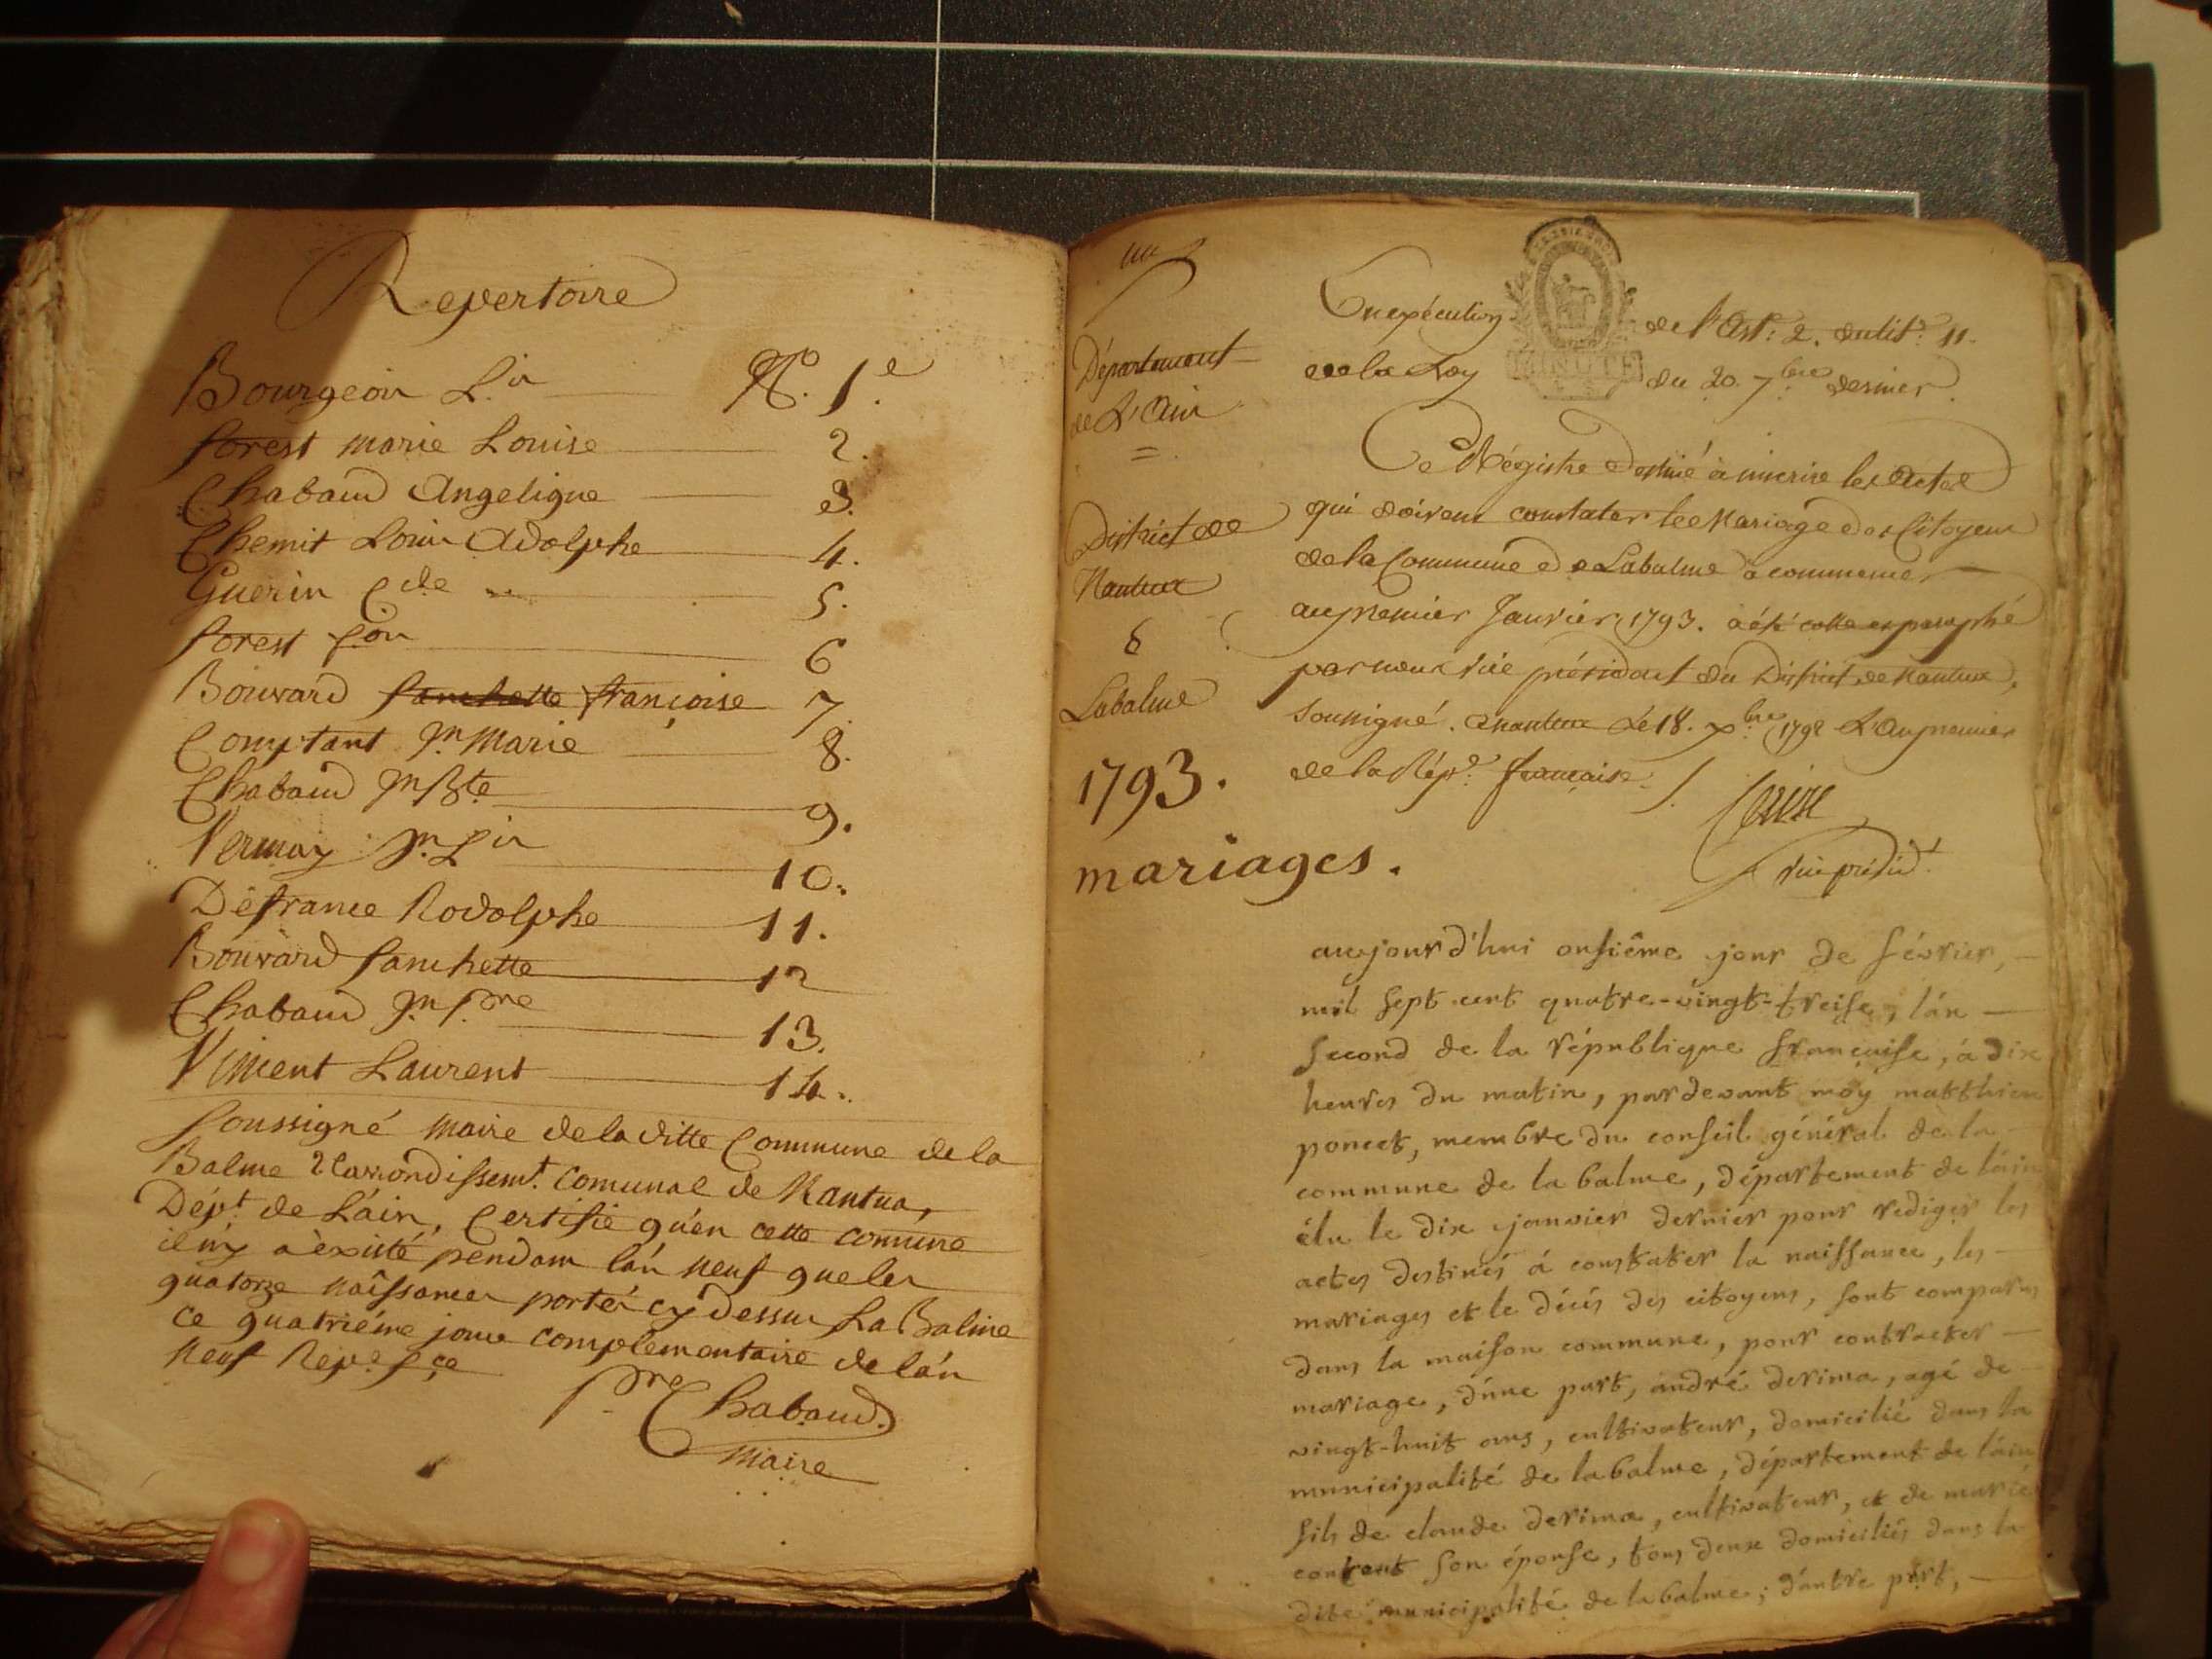 Repertoire
Bourgeois L.is N.o 1.e
forest marie Louise 2.
Chabaud Angelique 3.
Chemit Louis Adolphe 4.
Guerin C.de 5.
forest f.ois 6
Bouvard fanchette françoise 7.
Comptant J.n Marie 8.
Chabaud J.n B.te 9.
Vermay J.n L.is 10.
Defrance Rodolphe 11.
Bouvard fanchette 12
Chabaud J.n P.re 13.
Viment Laurent 14.
soussigné maire de la ditte Commune de la
Balme 2.e arrondissem.t comunal de Nantua,
Dép.t de L'áin, Certifie qu'en cette comune
il n'y à èxisté pendant l'án neuf que les
quatorze naîssances portés cy dessus La Balme
ce quatriéme jour complementaire de l'án
neuf Rép.e f.çe
P.re Chabaud
Maire
Département
de L'Ain
=
District de
Nantua
&
Labalme
1793.
mariages.
En exécution de l'Art: 2. du tit.e 11.
de la Loy MINUTE du 20. 7.bre dernier.
Ce Régistre destiné à inscrire les actes
qui doivent constater le Mariage des Citoyens
de la Commune de Labalme à commencer
au premier Janvier 1793. a été cotté et paraphé
par nous vice président du District de Nantua,
soussigné. à nantua Le 18. x.bre 1792 L'an premier
de la Rép.e française ./.
vice présid.t
aujourd'hui onsiême jour de février,
mil sept cent quatre-vingt-treise, l'án
second de la république françaiSe, á dix
heures du matin, pardevant moy matthieu
poncet, membre du conseil général de la
commune de la balme, département de láin
élu le dix janvier dernier pour rediger les
actes destinés á constater la naissance, les
mariages et le décès des citoyens, sont comparus
dans la maison commune, pour contracter
mariage, d'úne part, andré derima, agé de
vingt-huit ans, cultivateur, domicilié dans la
municipalité de la balme, département de láin,
fils de claude derima, cultivateur, et de marie
contant son épouse, tous deux domiciliés dans la
dite municipalité de la balme; d'autre part,